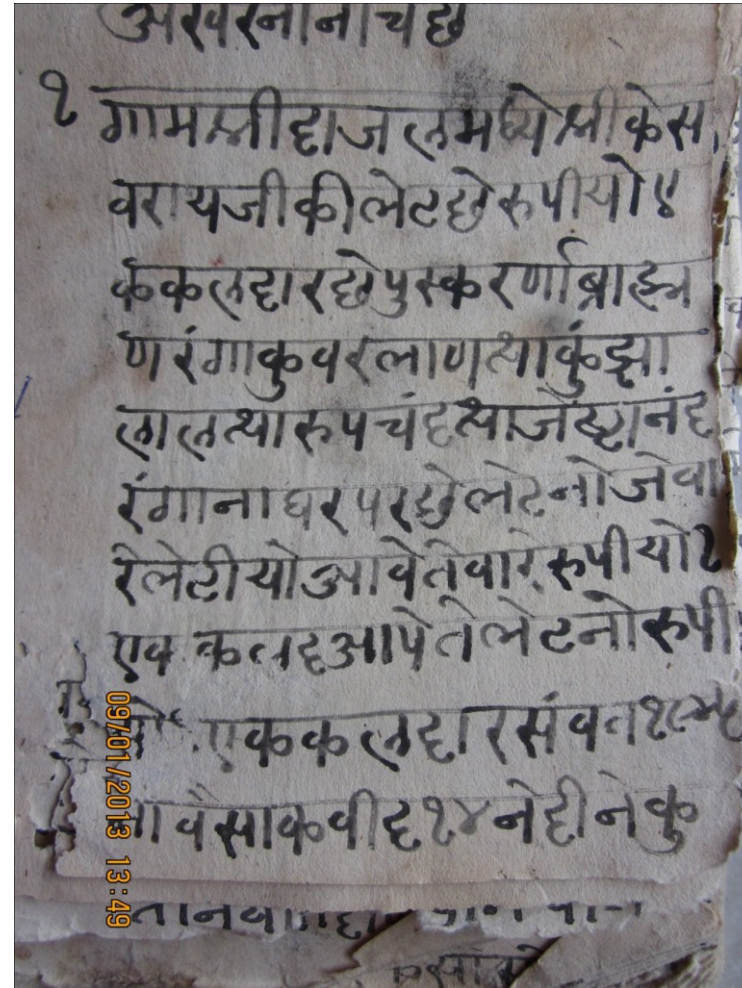 अखरनानाचछे
१ गामश्रीदाजलमध्येश्रीकेस
वरायजीकीभेटछेरुपीयोए
ककलदारछेपुस्करर्णाब्राह्म
ण रंगाकुवरभाणतथाकुंझा
लालतथारुपचंदतथाजेष्टानंद
रंगानाघरपरछेभेटनोजेवा
रेभेटीयोआवेतेवारेरुपीयो१
एक कलदआपेतेभेटनोरुपी
यो एककलदारसंवत
ना वैसाकवीद१४नेदीनेकु
09/01/2013 13:49